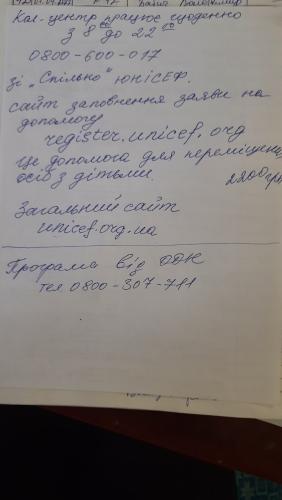 Кол-центр працює щоденно
з 8 00 до 22 00
0800-600-017
зі "Спільно" ЮНІСЕФ.
сайт заповнення заяви на
допомогу
register.unicef.org
Це допомога для переміщених
осіб з дітьми. 2200 грн
Загальний сайт
unicef.org.ua
Програма від
тел. 0800-307-711